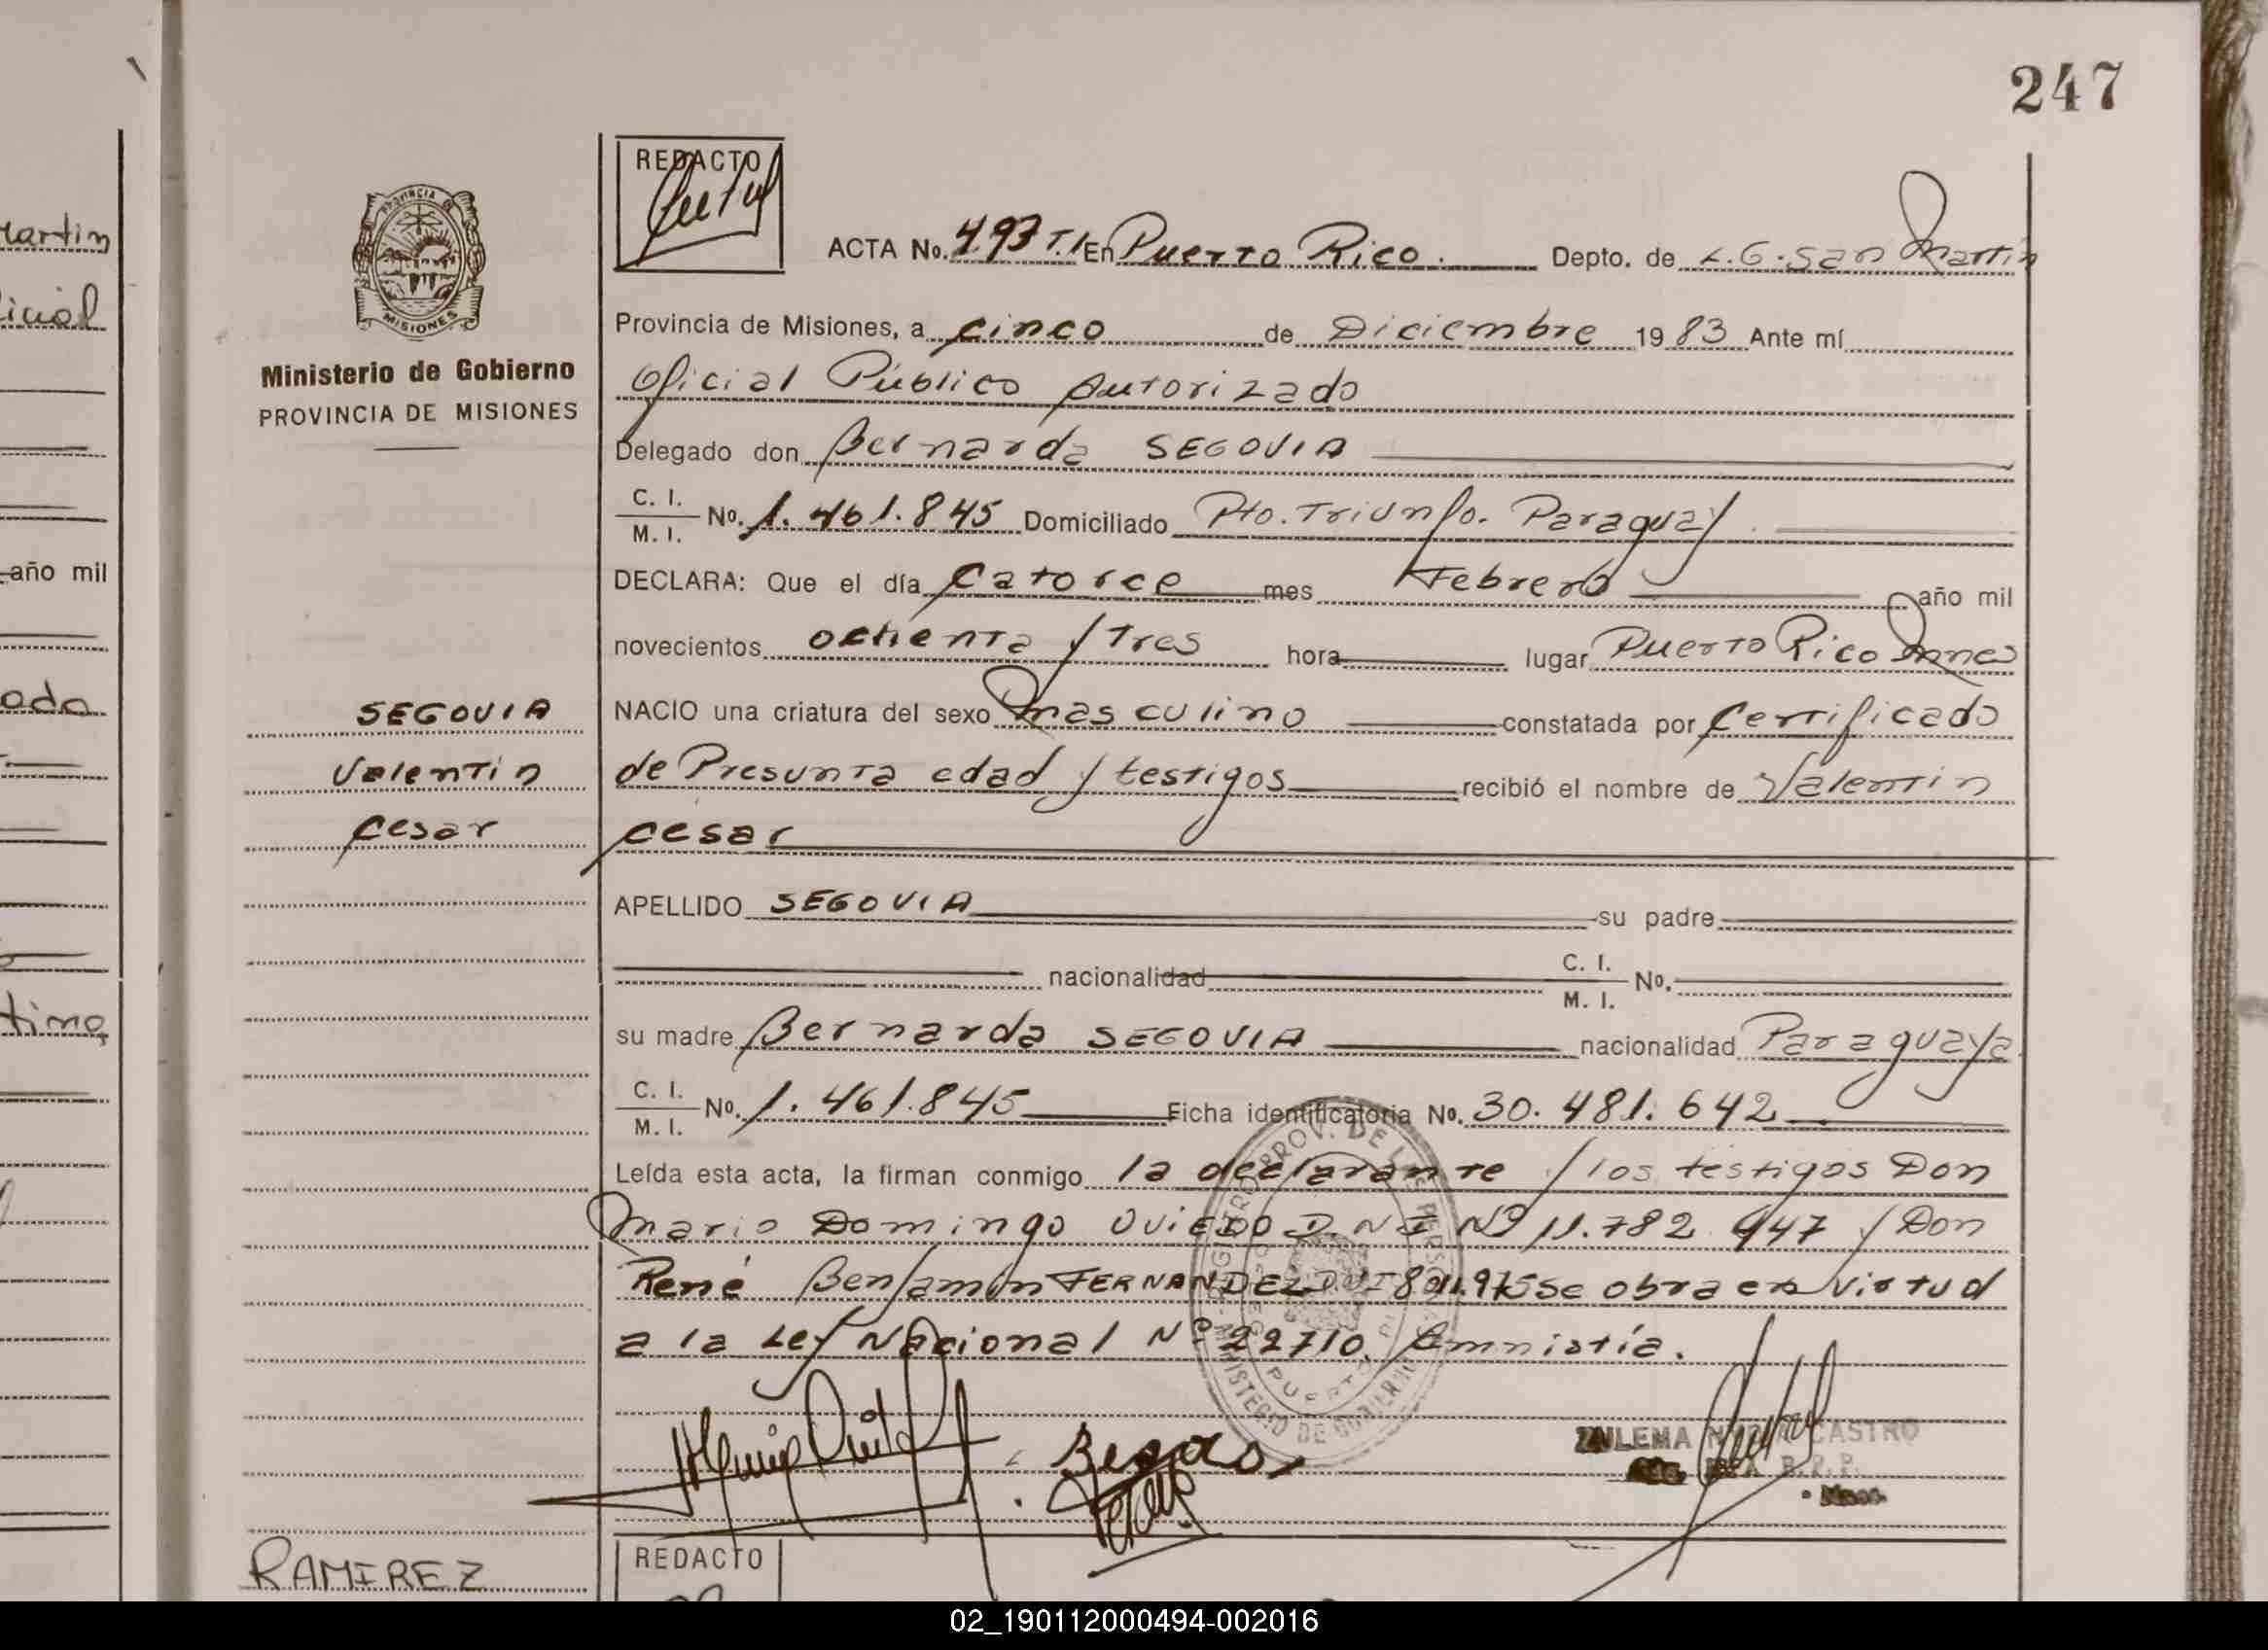 247
artin
icial
año mil
ada
timo
PROVINCIA
MISIONES
Ministerio de Gobierno
PROVINCIA DE MISIONES
SEGOVIA
Valentin
Cesar
RAMIREZ
REDACTO
ACTA No. 493 T.I En Puerto Rico. Depto. de L.G. San Martin
Provincia de Misiones, a cinco de Diciembre 1983 Ante mí
Oficial Público Autorizado
Delegado don Bernarda SEGOVIA
C. I.
M. I. No. 1.461.845 Domiciliado Pto. Triunfo. Paraguay
DECLARA: Que el día Catorce mes Febrero año mil
novecientos ochenta y Tres hora lugar Puerto Rico Mnes
NACIO una criatura del sexo Masculino constatada por Certificado
de Presunta edad y testigos recibió el nombre de Valentin
Cesar
APELLIDO SEGOVIA su padre
nacionalidad C. I.
M. I. No.
su madre Bernarda SEGOVIA nacionalidad Paraguaya
C. I.
M. I. No. 1.461.845 Ficha identificatoria No. 30.481.642
Leída esta acta, la firman conmigo la declarante y los testigos Don
Mario Domingo OVIEDO D.N.I Nº 11.782.947 y Don
René Benjamin FERNANDEZ se obra en virtud
a la Ley Nacional Nº 22710. Amnistía.
ZULEMA CASTRO
REDACTO
02_190112000494-002016